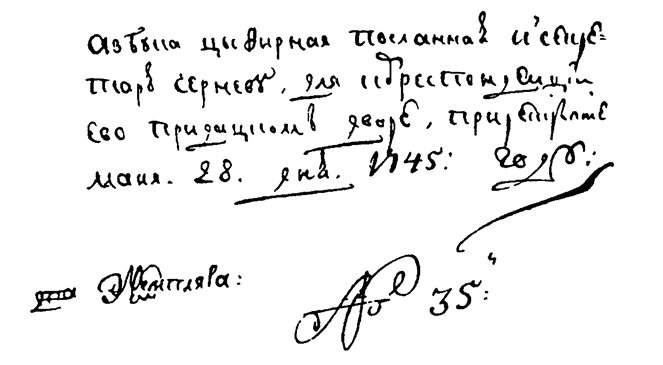 азбука цыфирная посланная к секре=
тарю Черневу, для корреспонденции
ево при дацкомъ дворе, при рескрипте
маия. 28. дня. 1745: году:
два экземпляра: № 35: